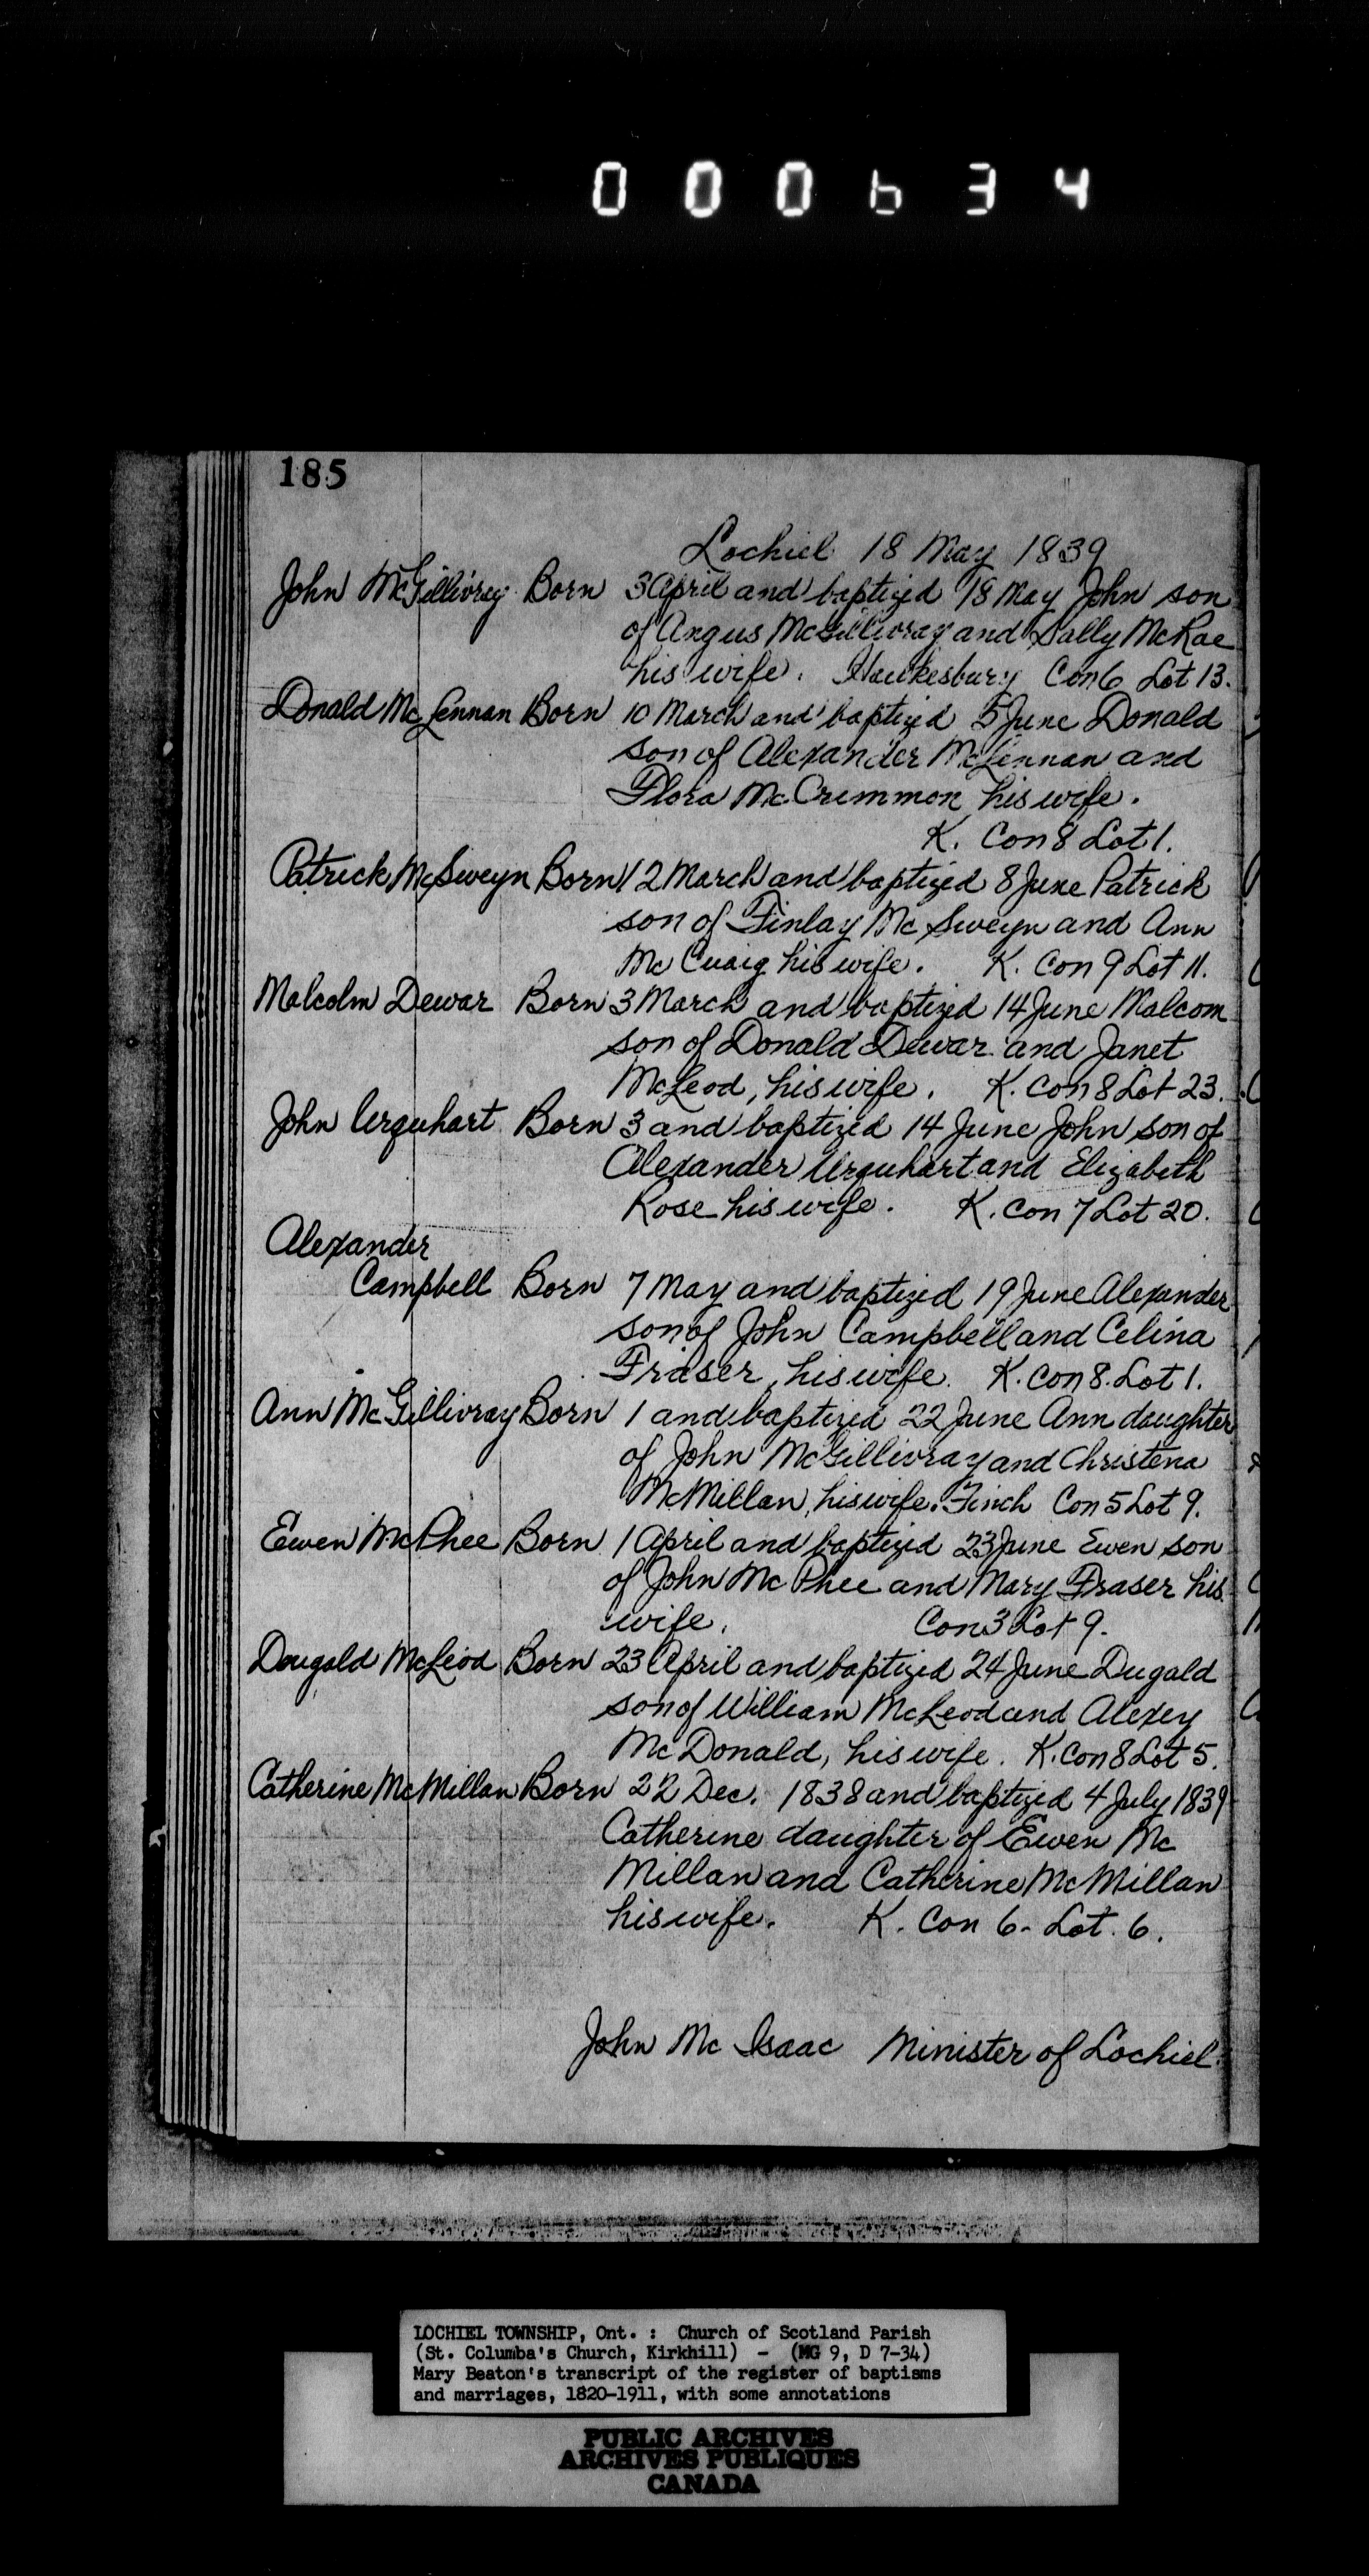 000634
185
Lochiel 18 May 1839
John McGillivray Born 3 April and baptized 18 May John son
of Angus McGillivray and Sally McRae
his wife. Hawkesbury Con 6 Lot 13.
Donald McLennan Born 10 March and baptized 5 June Donald
son of Alexander McLennan and
Flora McCrimmon his wife.
K. Con 8 Lot 1.
Patrick McSweyn Born 12 March and baptized 8 June Patrick
son of Finlay McSweyn and Ann
McCuaig his wife. K. Con 9 Lot 11.
Malcolm Dewar Born 3 March and baptized 14 June Malcom
son of Donald Dewar and Janet
McLeod, his wife. K. Con 8 Lot 23.
John Urquhart Born 3 and baptized 14 June John son of
Alexander Urquhart and Elizabeth
Rose his wife. K. Con 7 Lot 20.
Alexander
Campbell Born 7 May and baptized 19 June Alexander
son of John Campbell and Celina
Fraser, his wife. K. Con 8. Lot 1.
Ann McGillivray Born 1 and baptized 22 June Ann daughter
of John McGillivray and Christena
McMillan, his wife. Finch Con 5 Lot 9.
Ewen McPhee Born 1 April and baptized 23 June Ewen son
of John McPhee and Mary Fraser his
wife. Con 3 Lot 9.
Dougald McLeod Born 23 April and baptized 24 June Dugald
son of William McLeod and Alexey
McDonald, his wife. K. Con 8 Lot 5.
Catherine McMillan Born 22 Dec. 1838 and baptized 4 July 1839
Catherine daughter of Ewen Mc
Millan and Catherine McMillan
his wife. K. Con 6 - Lot. 6.
John McIsaac Minister of Lochiel.
LOCHIEL TOWNSHIP, Ont. : Church of Scotland Parish
(St. Columba's Church, Kirkhill) - (MG 9, D 7-34)
Mary Beaton's transcript of the register of baptisms
and marriages, 1820-1911, with some annotations
PUBLIC ARCHIVES
ARCHIVES PUBLIQUES
CANADA